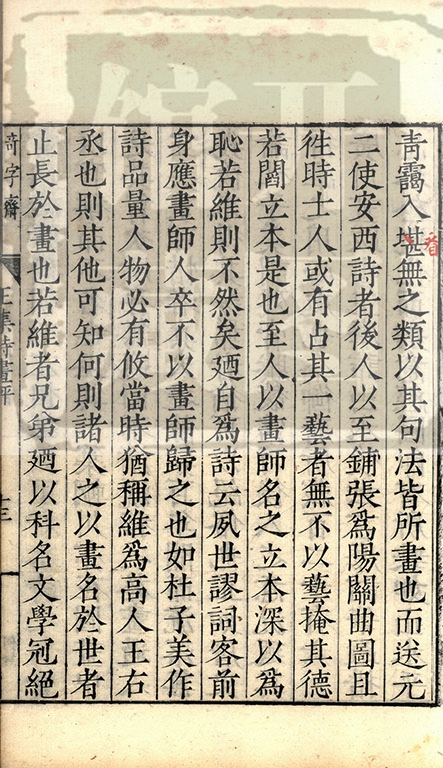 青靄入堪無之類以其句法皆所畫也而送元
看
二使安西詩者後人以至鋪張爲陽關曲圖且
徃時士人或有占其一藝者無不以藝掩其德
若閻立本是也至人以畫師名之立本深以爲
恥若維則不然矣廼自爲詩云夙世謬詞客前
身應畫師人卒不以畫師歸之也如杜子美作
詩品量人物必有攸當時猶稱維爲高人王右
丞也則其他可知何則諸人之以畫名於世者
止長於畫也若維者兄弟廼以科名文學冠絕
奇字齋
王集詩畫評